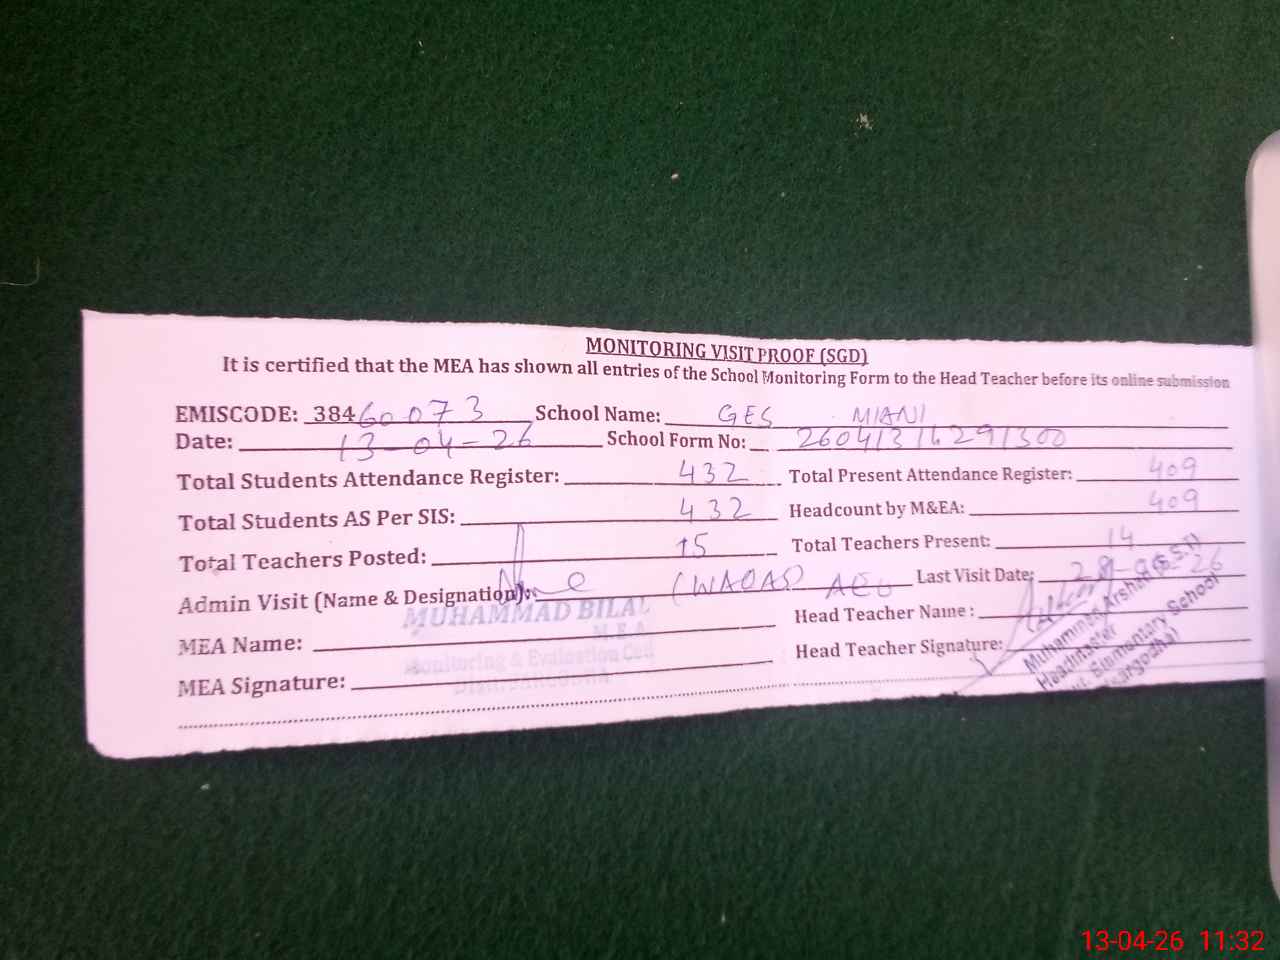 MONITORING VISIT PROOF (SGD)
It is certified that the MEA has shown all entries of the School Monitoring Form to the Head Teacher before its online submission
EMISCODE: 38460073 School Name: GES MIANI
Date: 13-04-26 School Form No:
Total Students Attendance Register: 432 Total Present Attendance Register: 409
Total Students AS Per SIS: 432 Headcount by M&EA: 409
Total Teachers Posted: 15 Total Teachers Present: 14
Admin Visit (Name & Designation): (WAQAS) AEO Last Visit Date: 26
MUHAMMAD BILAL
M.E.A
Monitoring & Evaluation Cell
MEA Name: Head Teacher Name:
MEA Signature: Head Teacher Signature:
Muhammad Arshad (S.S.T)
Headmaster
Elementary School
13-04-26 11:32